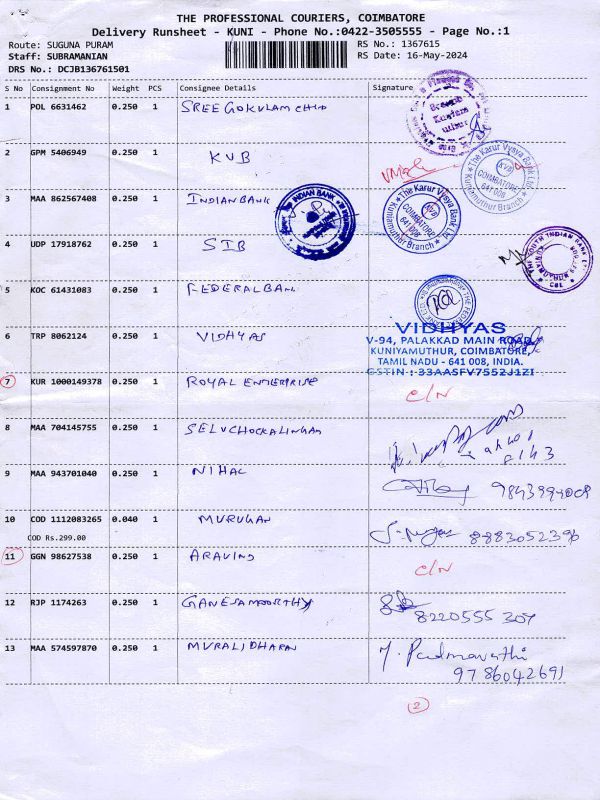 THE PROFESSIONAL COURIERS, COIMBATORE
Delivery Runsheet - KUNI - Phone No.:0422-3505555 - Page No.:1
Route: SUGUNA PURAM
RS No.: 1367615
Staff: SUBRAMANIAN
RS Date: 16-May-2024
DRS No.: DCJB136761501
S No Consignment No Weight PCS Consignee Details Signature
1 POL 6631462 0.250 1 SREE GOKULAM CHID
2 GPM 5406949 0.250 1 KVB
The Karur Vysya Bank Ltd KVB COIMBATORE 641 008 Kuniamuthur Branch
3 MAA 862567408 0.250 1 INDIAN BANK
INDIAN BANK
The Karur Vysya Bank Ltd KVB COIMBATORE 641 008 Kuniamuthur Branch
4 UDP 17918762 0.250 1 SIB
THE SOUTH INDIAN BANK
5 KOC 61431083 0.250 1 FEDERAL BAN
6 TRP 8062124 0.250 1 VIDHYAS
VIDHYAS
V-94, PALAKKAD MAIN ROAD,
KUNIYAMUTHUR, COIMBATORE,
TAMIL NADU - 641 008, INDIA.
GSTIN : 33AASFV7552J1ZI
7 KUR 1000149378 0.250 1 ROYAL ENTERPRISE C/N
8 MAA 704145755 0.250 1 SELVCHOCKALINGAM
9 MAA 943701040 0.250 1 NIHAL
10 COD 1112083265 0.040 1 MURUGAN 8883052396
COD Rs.299.00
11 GGN 98627538 0.250 1 ARAVIND C/N
12 RJP 1174263 0.250 1 GANESAMOORTHY 8220555 307
13 MAA 574597870 0.250 1 MURALIDHARAN M. Padmavathi
9786042691
2